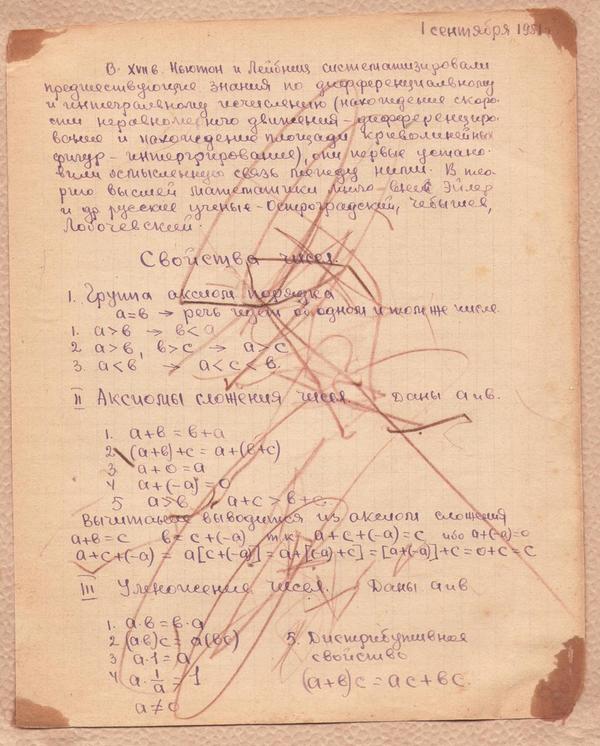 1 сентября 1951 г.
В XVII в. Ньютон и Лейбниц систематизировали
предшествующие знания по дифференциальному
и интегральному исчислению (нахождение скоро-
сти неравномерного движения – дифференциро-
вание и нахождение площади криволинейных
фигур – интегрирование), они первые устано-
вили осмысленную связь между ними. В тео-
рию высшей математики много внес Эйлер
и др русские ученые – Остроградский, Чебышев,
Лобочевский.
Свойства чисел.
I. Группа аксиом порядка
a=в → речь идет об одном и том же числе.
1. a>в → в<a
2 a>в, в>c → a>c
3. a<в → a<c<в.
II Аксиомы сложения чисел. Даны a и в.
1. a+в=в+a
2. (a+в)+c=a+(в+c)
3. a+0=a
4 a+(-a)=0
5 a>в, a+c>в+c
Вычитание выводится из аксиом сложения
a+в=c в=c+(-a) т.к. a+c+(-a)=c ибо a+(-a)=0
a+c+(-a)= a[c+(-a)]=a+[(-a)+c]=[a+(-a)]+c=0+c=c
III Умножение чисел. Даны a и в.
1. a·в=в·a
2 (aв)c=a(вc)
3 a·1=a
4 a·1/a=1
a≠0
5. Дистрибутивное
свойство
(a+в)c=ac+вc.